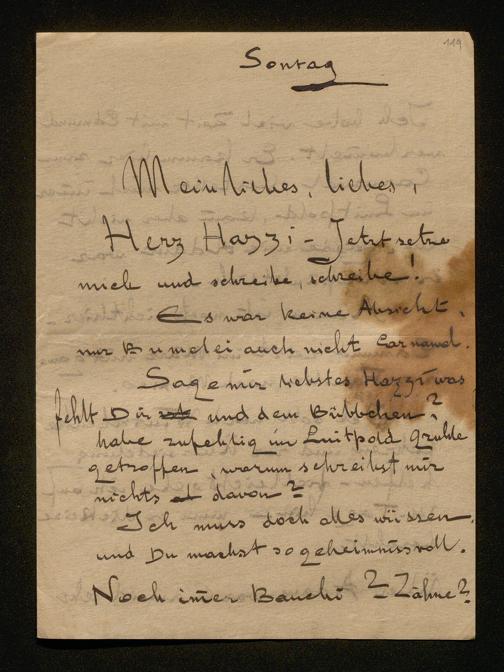 119
Sontag
Mein liebes, liebes,
Herz Hazzi – Jetzt setze
mich und schreibe, schreibe!
Es war keine Absicht,
nur Bumelei auch nicht Carnawal.
Sage mir liebstes Hazzi was
fehlt Dir und dem Bübbchen?
habe zufehlig im Luitpold
getroffen, warum schreibst mir
nichts davon?
Ich muss doch alles wüssen,
und Du machst so geheimnissvoll.
Noch imer Bauchi? Zähne?